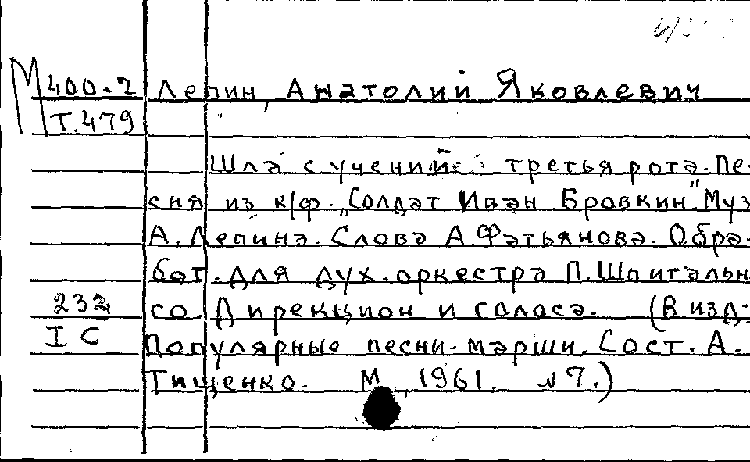 М 400-2 Лепин, Анатолий Яковлевич
Т.479
Шла с учений третья рота. Пе-
сня из к/ф. "Солдат Иван Бровкин" Муз
А. Лепина. Слова А Фатьянова. Обра-
бот. для дух. оркестра П. Шпитальн
232 го Дирекцион и голоса. (В изд-
I С Популярные песни-марши. Сост. А.
Тищенко. М., 1961. №7.)